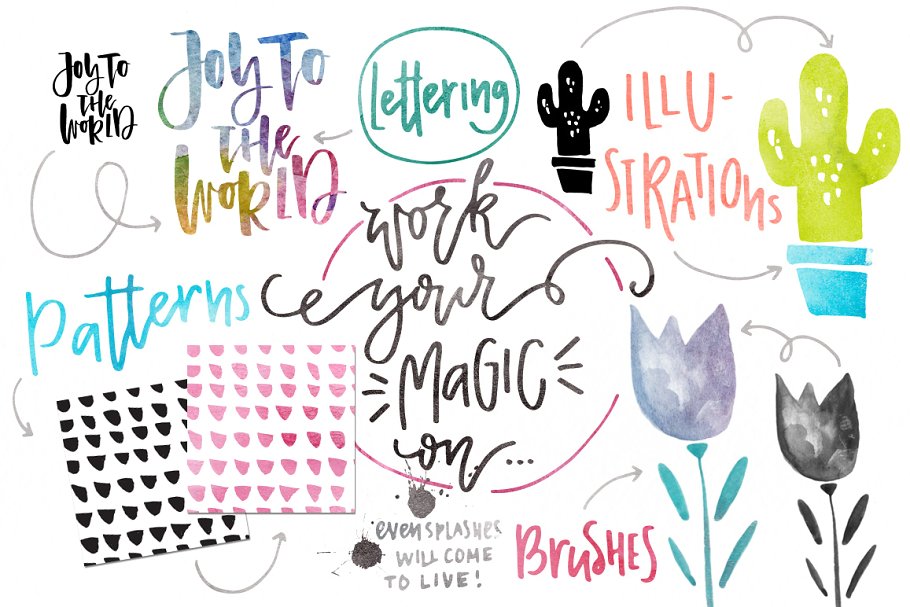 JOY TO
THE
WORLD
JOY TO
THE
WORLD
Lettering
ILLU-
STRATIONS
work
your
MAGIC
on...
Patterns
EVEN SPLASHES
WILL COME
TO LIVE!
BRUSHES